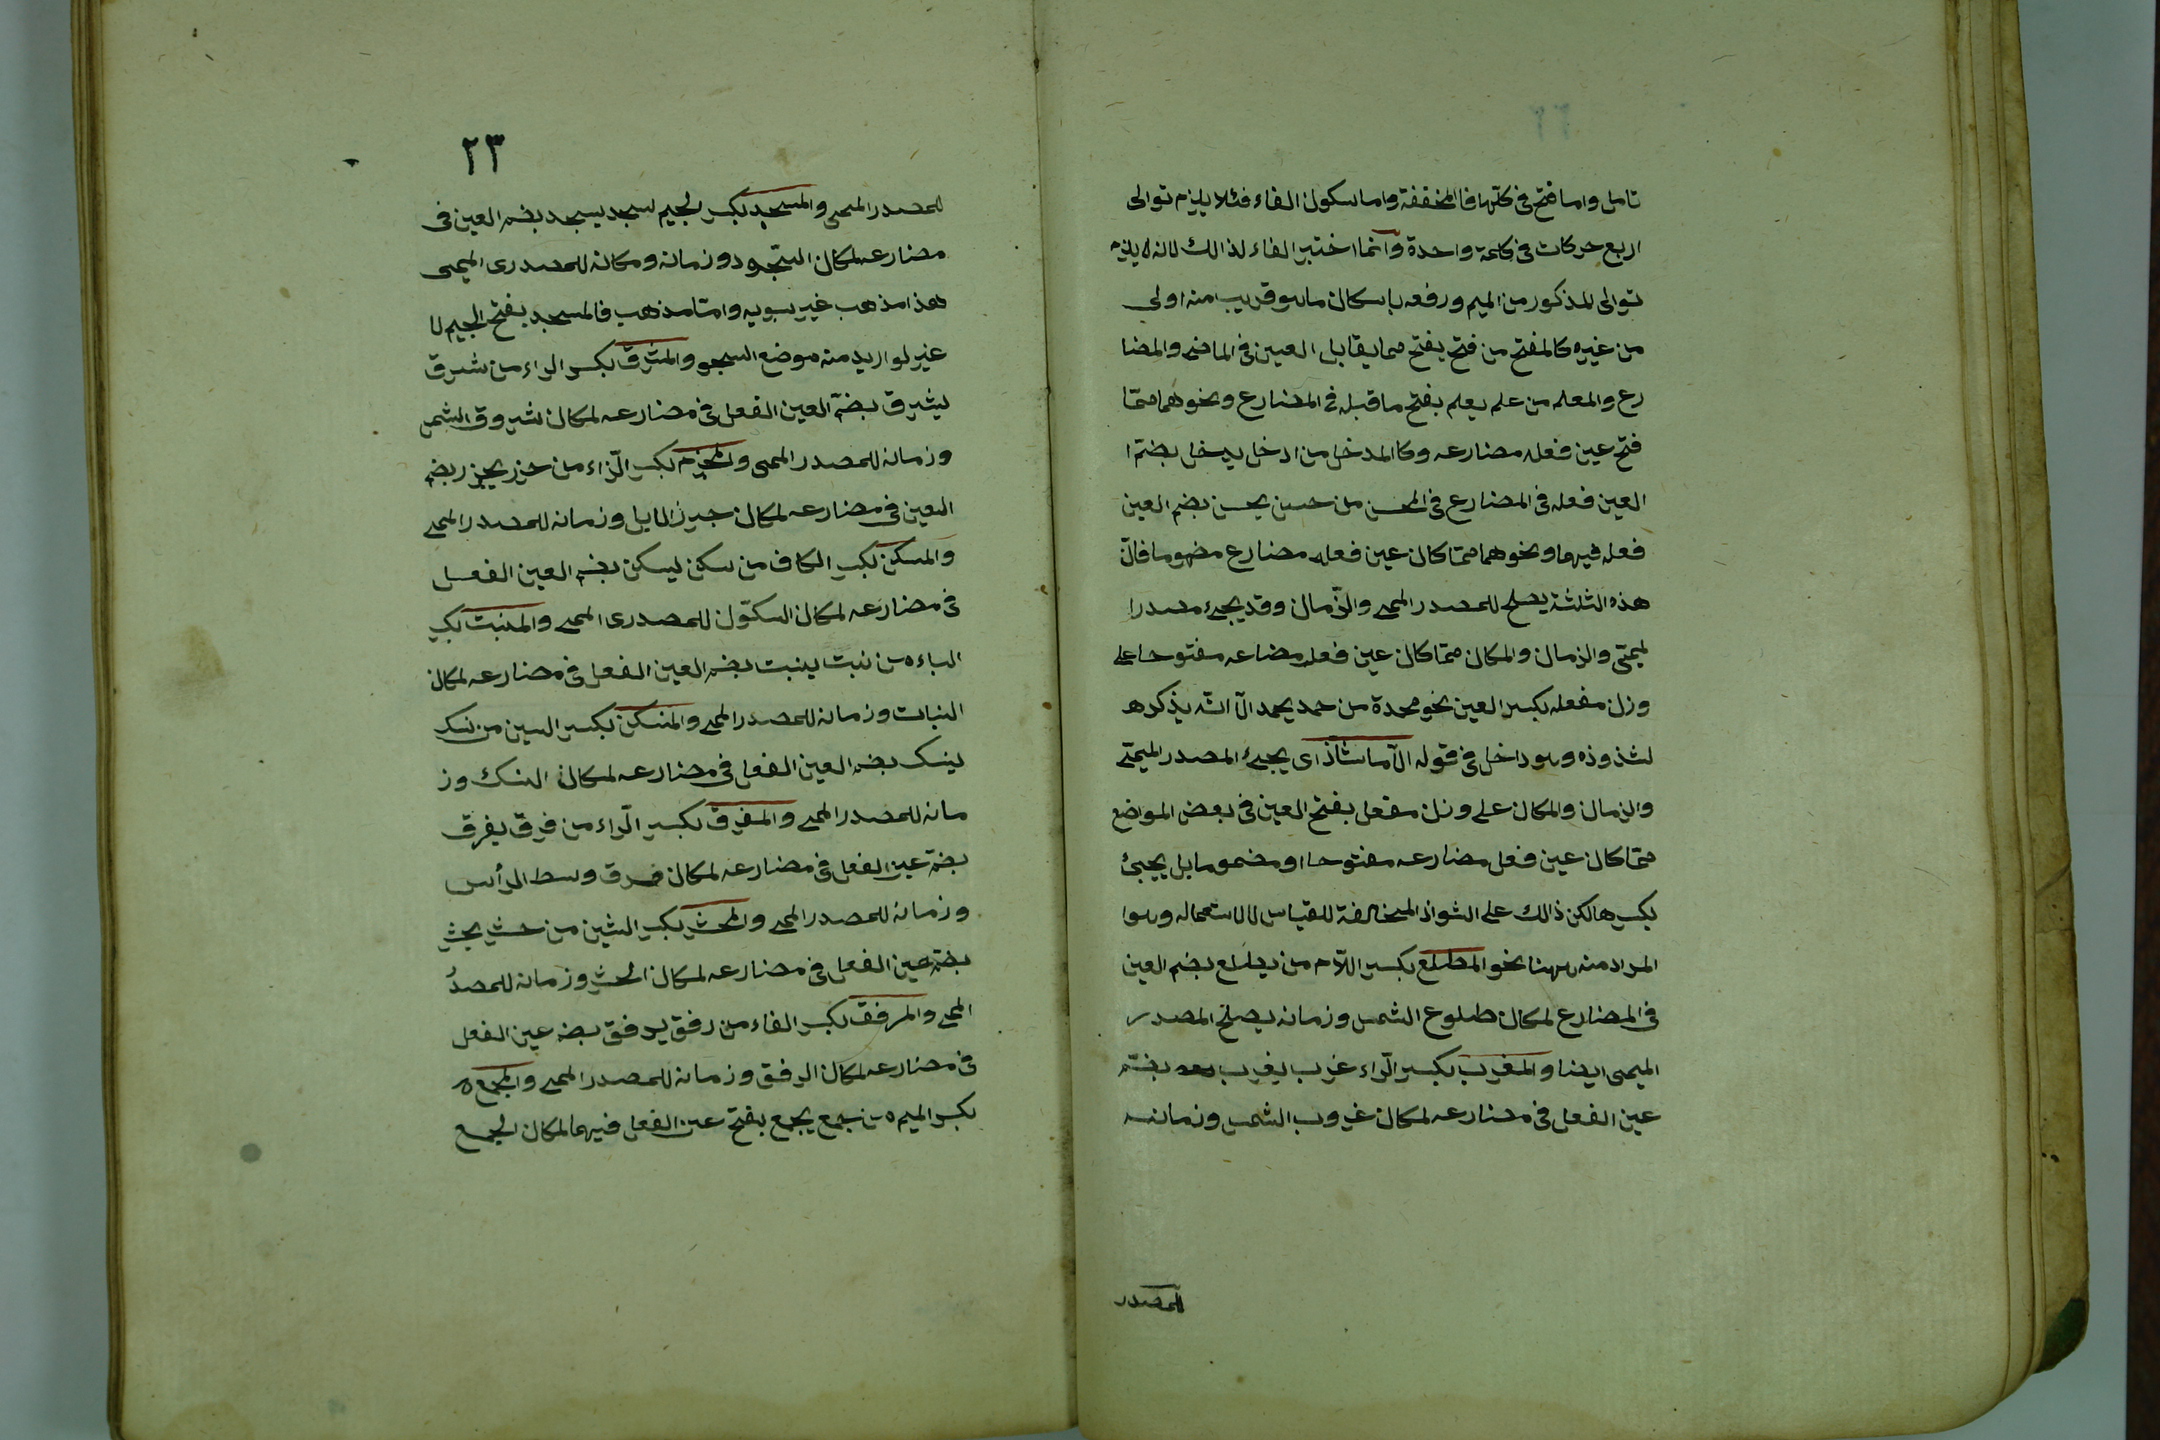 تامل واما فتح فى كلتها فالمخففة واما سكون الفاء فلئلا يلزم توالى
اربع حركات فى كلمة واحدة وانما اختير الفاء لذالك لانه لا يلزم
توالى المذكور من الميم ورفعه باسكان ماهو قريب منه اولى
من غيره كالمفتح من فتح يفتح مما يقابل العين فى الماضى والمضا
رع والمعلم من علم يعلم بفتح ماقبله فى المضارع ونحوهما ممّا
فتح عين فعله مضارعه وكا المدخل من ادخل يدخل بضم ا
العين فعله فى المضارع فى المحسن من حسن يحسن بضم العين
فعله فيهما ونحوهما ممّا كان عين فعله مضارع مضموما فانّ
هذه الثلثة يصلح للمصدر الميمى والزّمان وقد يجئ مصدرا
لميمىّ والزمان والمكان ممّا كان عين فعله مضاعه مفتوحا على
وزن مفعله بكسر العين نحو محمدة من حمد يحمد الّا انّه يذكره
لشذوذه وهو داخل فى قوله الّا ماشاذّ اى يجئ المصدر الميمىّ
والزمان والمكان على وزن مفعل بفتح العين فى بعض المواضع
ممّا كان عين فعل مضارعه مفتوحا او مضموما بل يجئ
بكسرها لكن ذالك على الشواذ المخالفة للقياس لا لاستعماله وهوا
المراد منه ههنا نحو المطلع بكسر اللّام من يطلع بضم العين
فى المضارع لمكان طلوع الشمس وزمانه يصلح المصدر
الميمى ايضا والمغرب بكسر الرّاء غرب يغرب بضمّ
عين الفعل فى مضارعه لمكان غروب الشمس وزمانه
للمصدر
٢٣
للمصدر الميمى والمسجد بكسر لجيم سجد يسجد بضم العين فى
مضارعه لمكان السّجود وزمانه ومكانه للمصدرى الميمى
هذا مذهب غير سبويه وامّا مذهب فالمسجد بفتح الجيم لا
غير لو اريد منه موضع السجو والمشرق بكسر الراء من شرق
يشرق بضمّ العين الفعل فى مضارعه لمكان شروق الشمس
وزمانه للمصدر الميمى والمجزم بكسر الزّاء من جزر يجزر بضم
العين فى مضارعه لمكان جزر الابل وزمانه للمصدر الميمى
والمسكن بكسر الكاف من سكن يسكن بضم العين الفعل
فى مضارعه لمكان السكون للمصدرى الميمى والمنبت بكسر
الباء من نبت ينبت بضم العين الفعل فى مضارعه لمكان
النبات وزمانه للمصدر الميمى والمنسك بكسر السين من نسك
ينسك بضم العين الفعل فى مضارعه لمكان النسك وز
مانه للمصدر الميمى والمفرق بكسر الرّاء من فرق يفرق
بضمّ عين الفعل فى مضارعه لمكان فرق وسط الرأس
وزمانه للمصدر الميمى والمحشر بكسر الشين من حشر يحشر
بضمّ عين الفعل فى مضارعه لمكان الحشر وزمانه للمصدُ
الميمى والمرفق بكسر الفاء من رفق يرفق بضم عين الفعل
فى مضارعه لمكان الرفق وزمانه للمصدر الميمى والمجمع
بكسر الميم من جمع يجمع بفتح عين الفعل فيهما لمكان لجمع